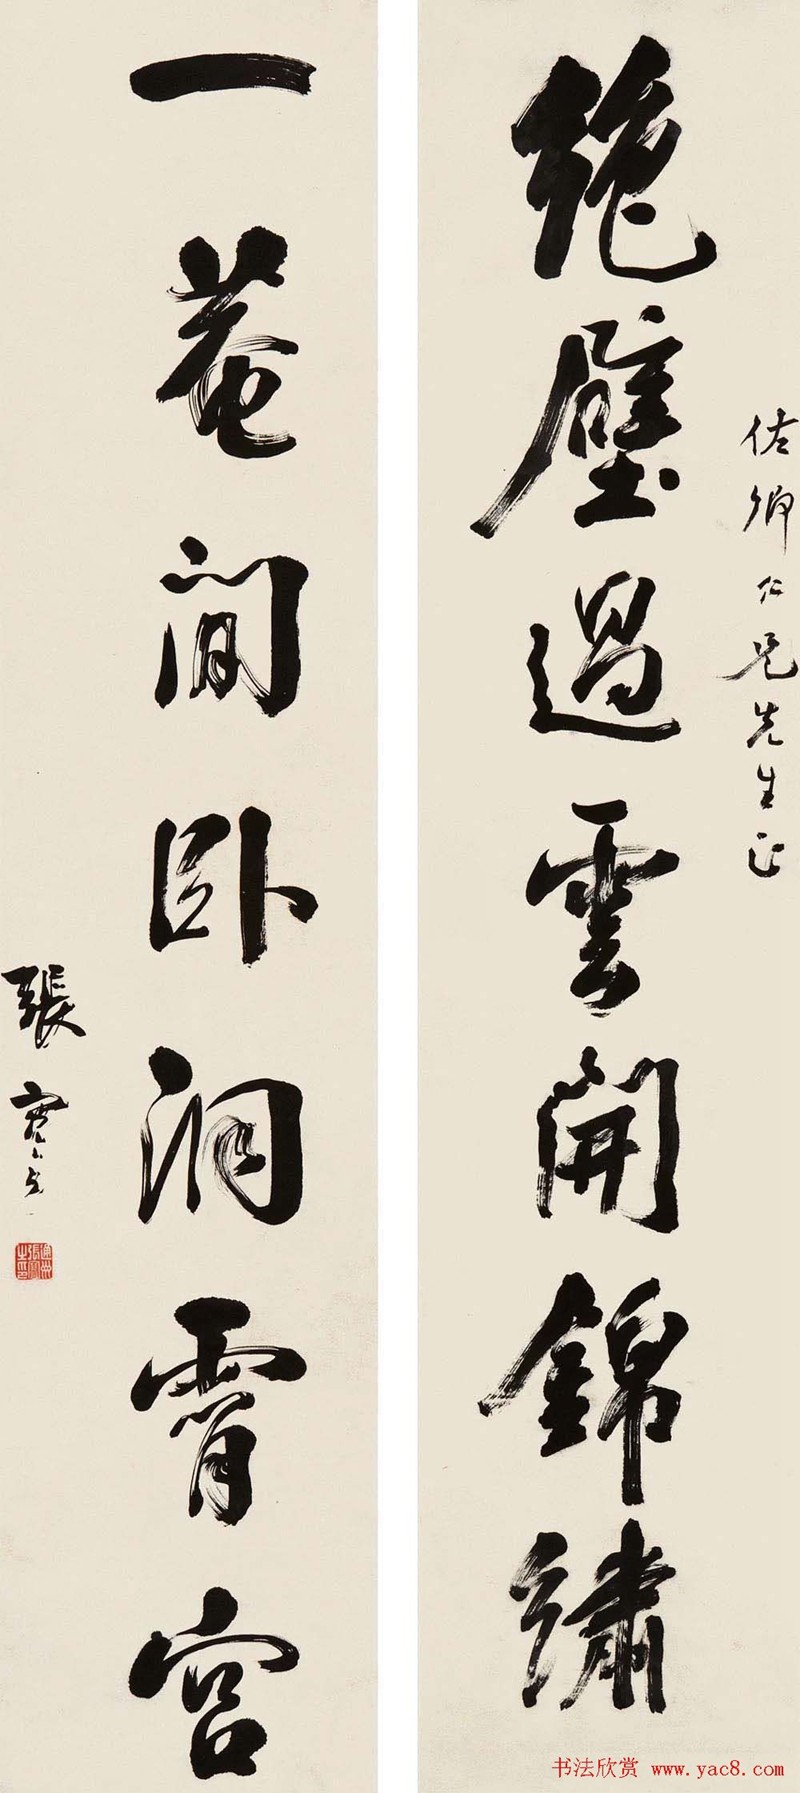 佐卿仁兄先生正
絶壁過雲開錦繡
一菴閒卧洞霄宮
張謇
書法欣赏 www.yac8.com